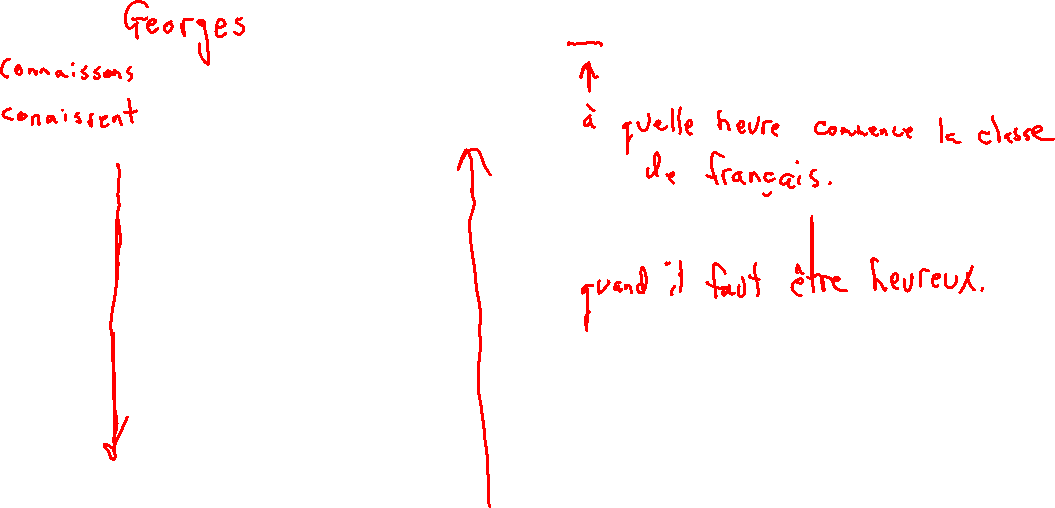 Georges
connaissons
connaissent
à quelle heure commence la classe
de français.
quand il faut être heureux.